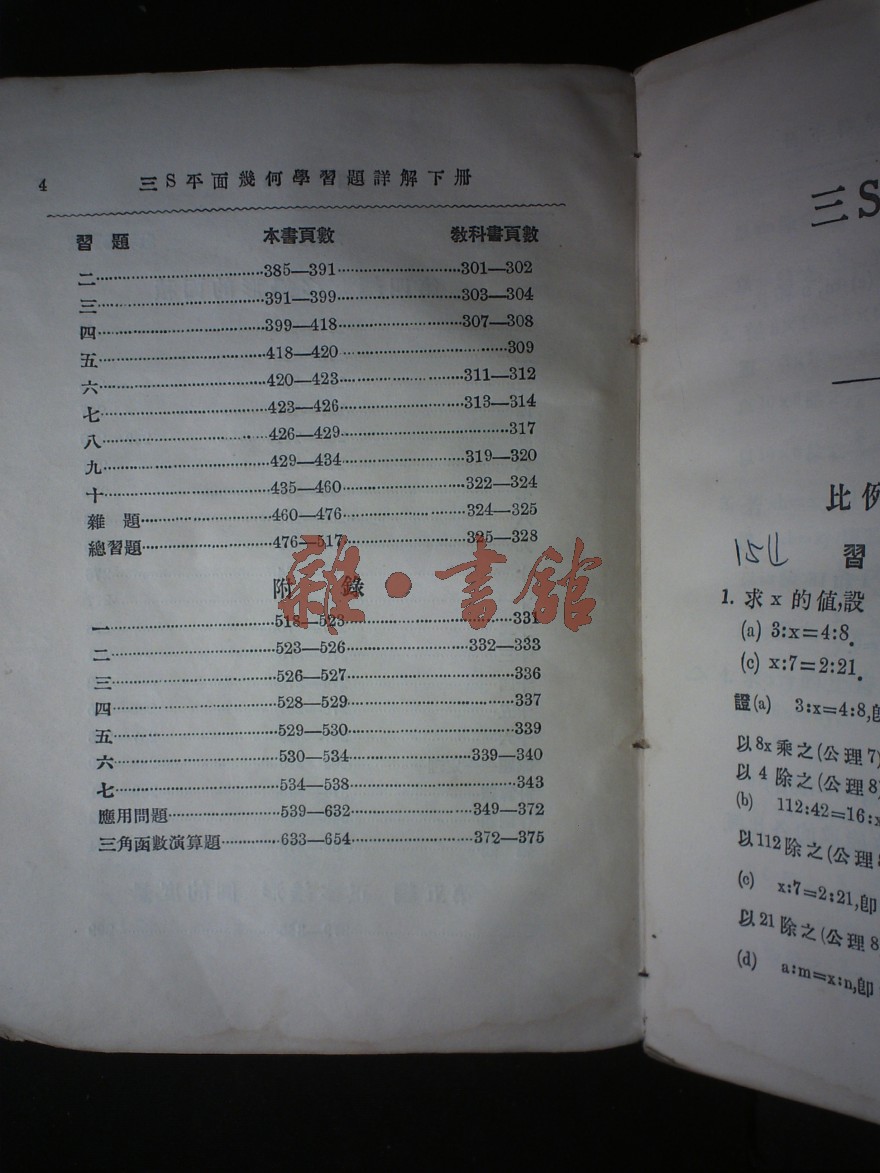 4 三S平面幾何學習題詳解下册
習 題 本書頁數 教科書頁數
二……385—391……301—302
三……391—399……303—304
四……399—418……307—308
五……418—420……309
六……420—423……311—312
七……423—426……313—314
八……426—429……317
九……429—434……319—320
十……435—460……322—324
雜 題……460—476……324—325
總習題……476—517……325—328
附 錄
雜·書館
一……518—523……331
二……523—526……332—333
三……526—527……336
四……528—529……337
五……529—530……339
六……530—534……339—340
七……534—538……343
應用問題……539—632……349—372
三角函數演算題……633—654……372—375
三S
比例
習
1. 求 x 的値,設
(a) 3:x=4:8.
(c) x:7=2:21.
證(a) 3:x=4:8,卽
以8x乘之(公理7)
以4除之(公理8)
(b) 112:42=16:x
以112除之(公理8
(c) x:7=2:21,卽
以21除之(公理8
(d) a:m=x:n,卽